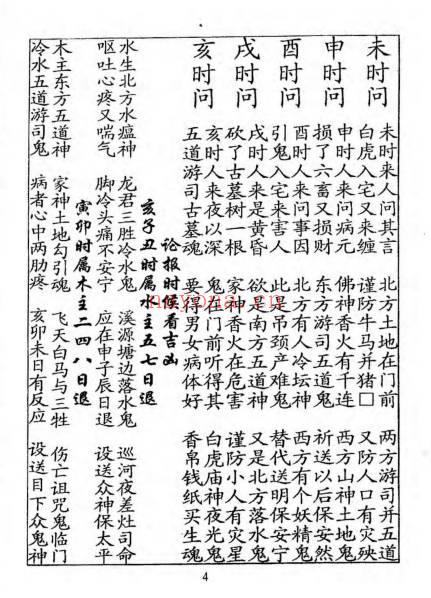 未时问
未时人来问其言 北方土地在门前 两方游司并五道
白虎入宅又来缠 谨防牛马并猪□ 又防人口有灾殃
申时问
申时人来问病元 佛神香火有千连 西方山神土地鬼
损了六畜又损财 东方游司五道鬼 祈送以后保安然
酉时问
酉时人来问事因 北方有人冷坛神 西方有个妖精鬼
引鬼入宅来害人 此是吊颈产难鬼 替代送明保安宁
戌时问
戌时人来是黄昏 欲是南方五道神 又是北方落水鬼
砍了古墓树一根 家神香火在危害 谨防小人有灾星
亥时问
亥时人来夜以深 鬼在门前听得其 白虎庙神夜光鬼
五道游司古墓魂 要得男女病体好 香帛钱纸买生魂
论报时候看吉凶
亥子丑时属水主五七日退
水生北方水瘟神 龙君三胜冷水鬼 溪源塘边落水鬼 巡河夜差灶司命
呕吐心疼又喘气 脚冷头痛不安宁 应在申子辰日退 设送众神保太平
寅卯时属木主二四八日退
木主东方五道神 家神土地勾引魂 飞天白马与三牲 伤亡诅咒鬼临门
冷水五道游司鬼 病者心中两肋疼 亥卯未日有反应 设送目下众鬼神
4